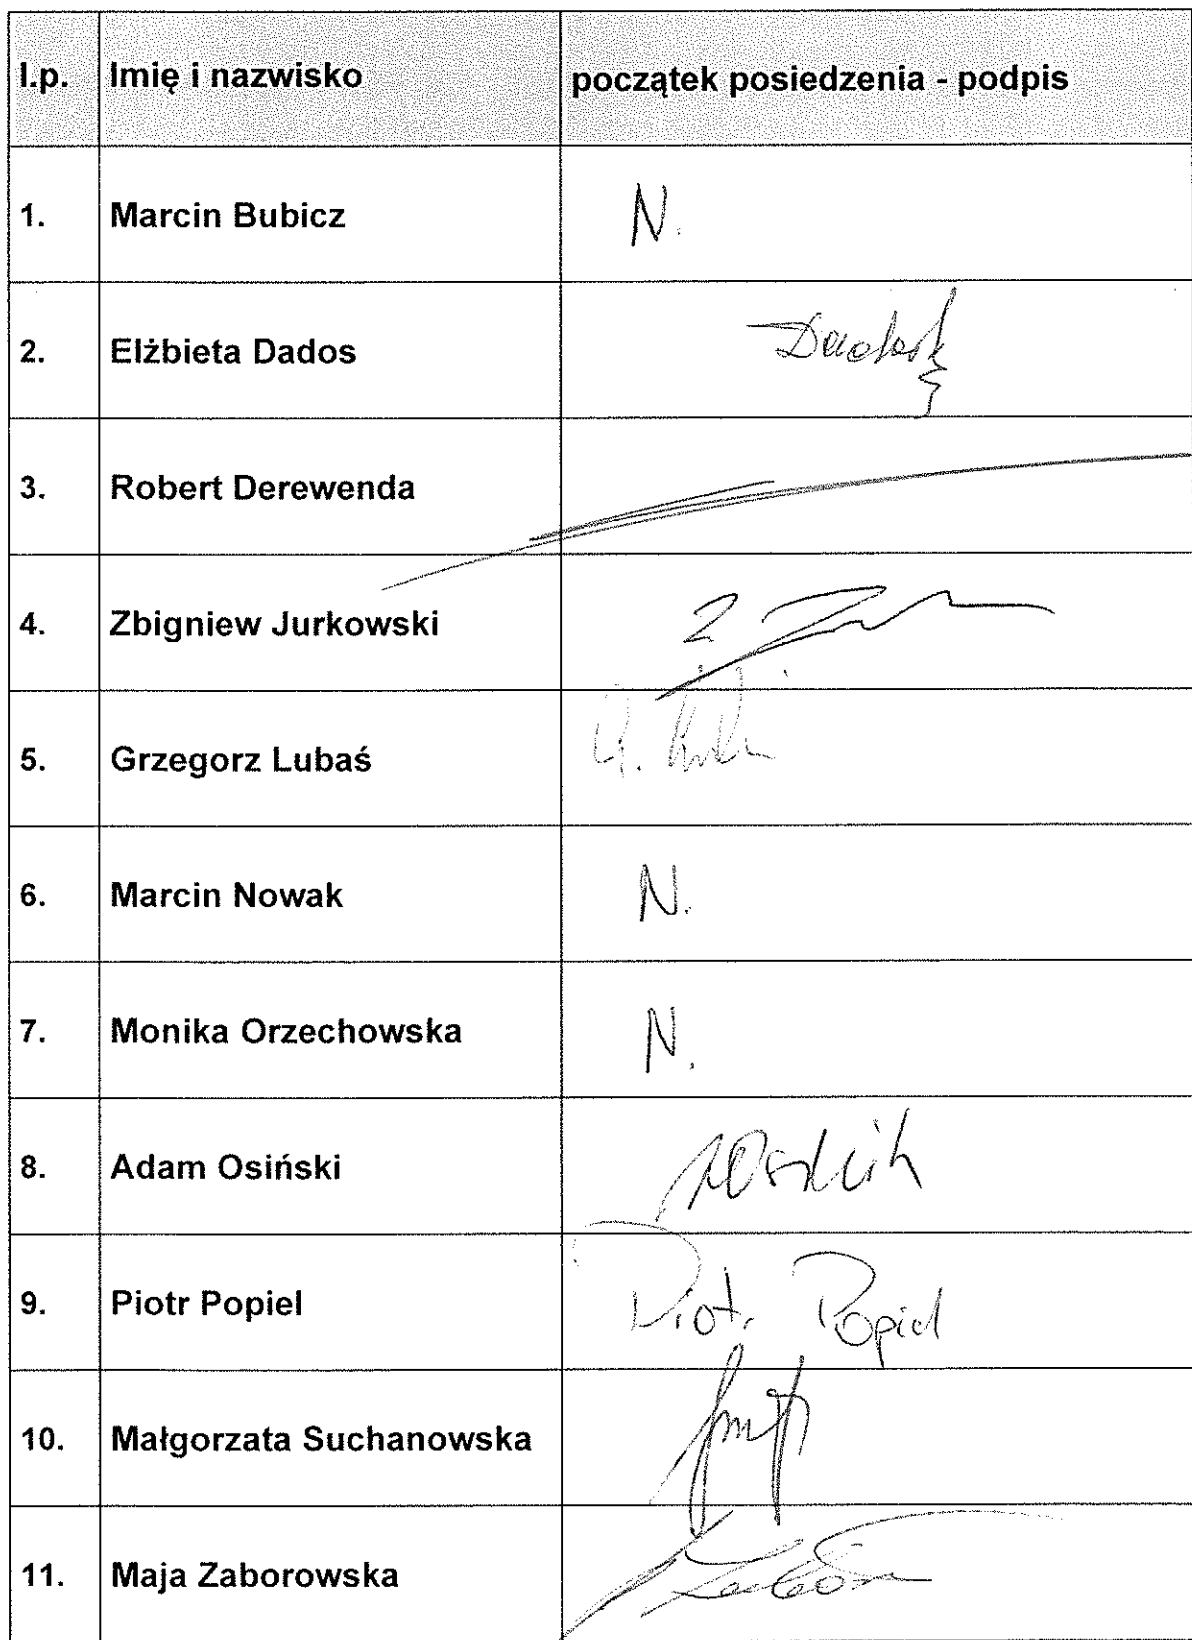 l.p. Imię i nazwisko początek posiedzenia - podpis
1. Marcin Bubicz N.
2. Elżbieta Dados
3. Robert Derewenda
4. Zbigniew Jurkowski
5. Grzegorz Lubaś
6. Marcin Nowak N.
7. Monika Orzechowska N.
8. Adam Osiński
9. Piotr Popiel Piotr Popiel
10. Małgorzata Suchanowska
11. Maja Zaborowska